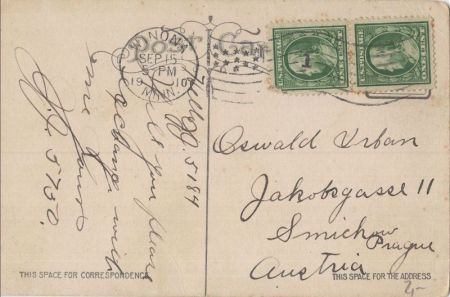 Post Card
WINONA
SEP 15
PM
1910
MINN.
5184
If you please
exchange with
me
Yours
5752.
Oswald Urban
Jakobsgasse 11
Smichow
Prague
Austria
THIS SPACE FOR CORRESPONDENCE
THIS SPACE FOR THE ADDRESS
2,-